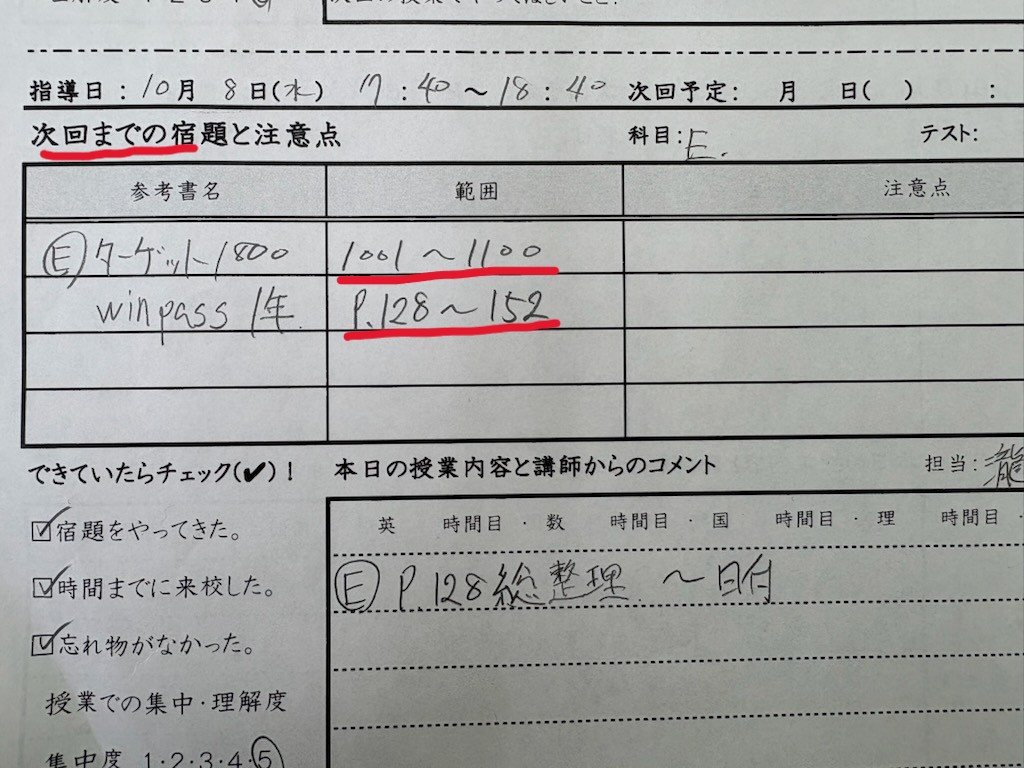 指導日：10月 8日(水) 17：40～18：40 次回予定： 月 日( ) ：
次回までの宿題と注意点 科目：E. テスト：
参考書名 範囲 注意点
Ⓔターゲット1800 1001～1100
winpass 1年. P.128～152
できていたらチェック(✔)！ 本日の授業内容と講師からのコメント 担当：瀧
英 時間目・数 時間目・国 時間目・理 時間目・
☑宿題をやってきた。
Ⓔ P.128総整理.～日付
☑時間までに来校した。
☑忘れ物がなかった。
授業での集中・理解度
集中度 1・2・3・4・⑤